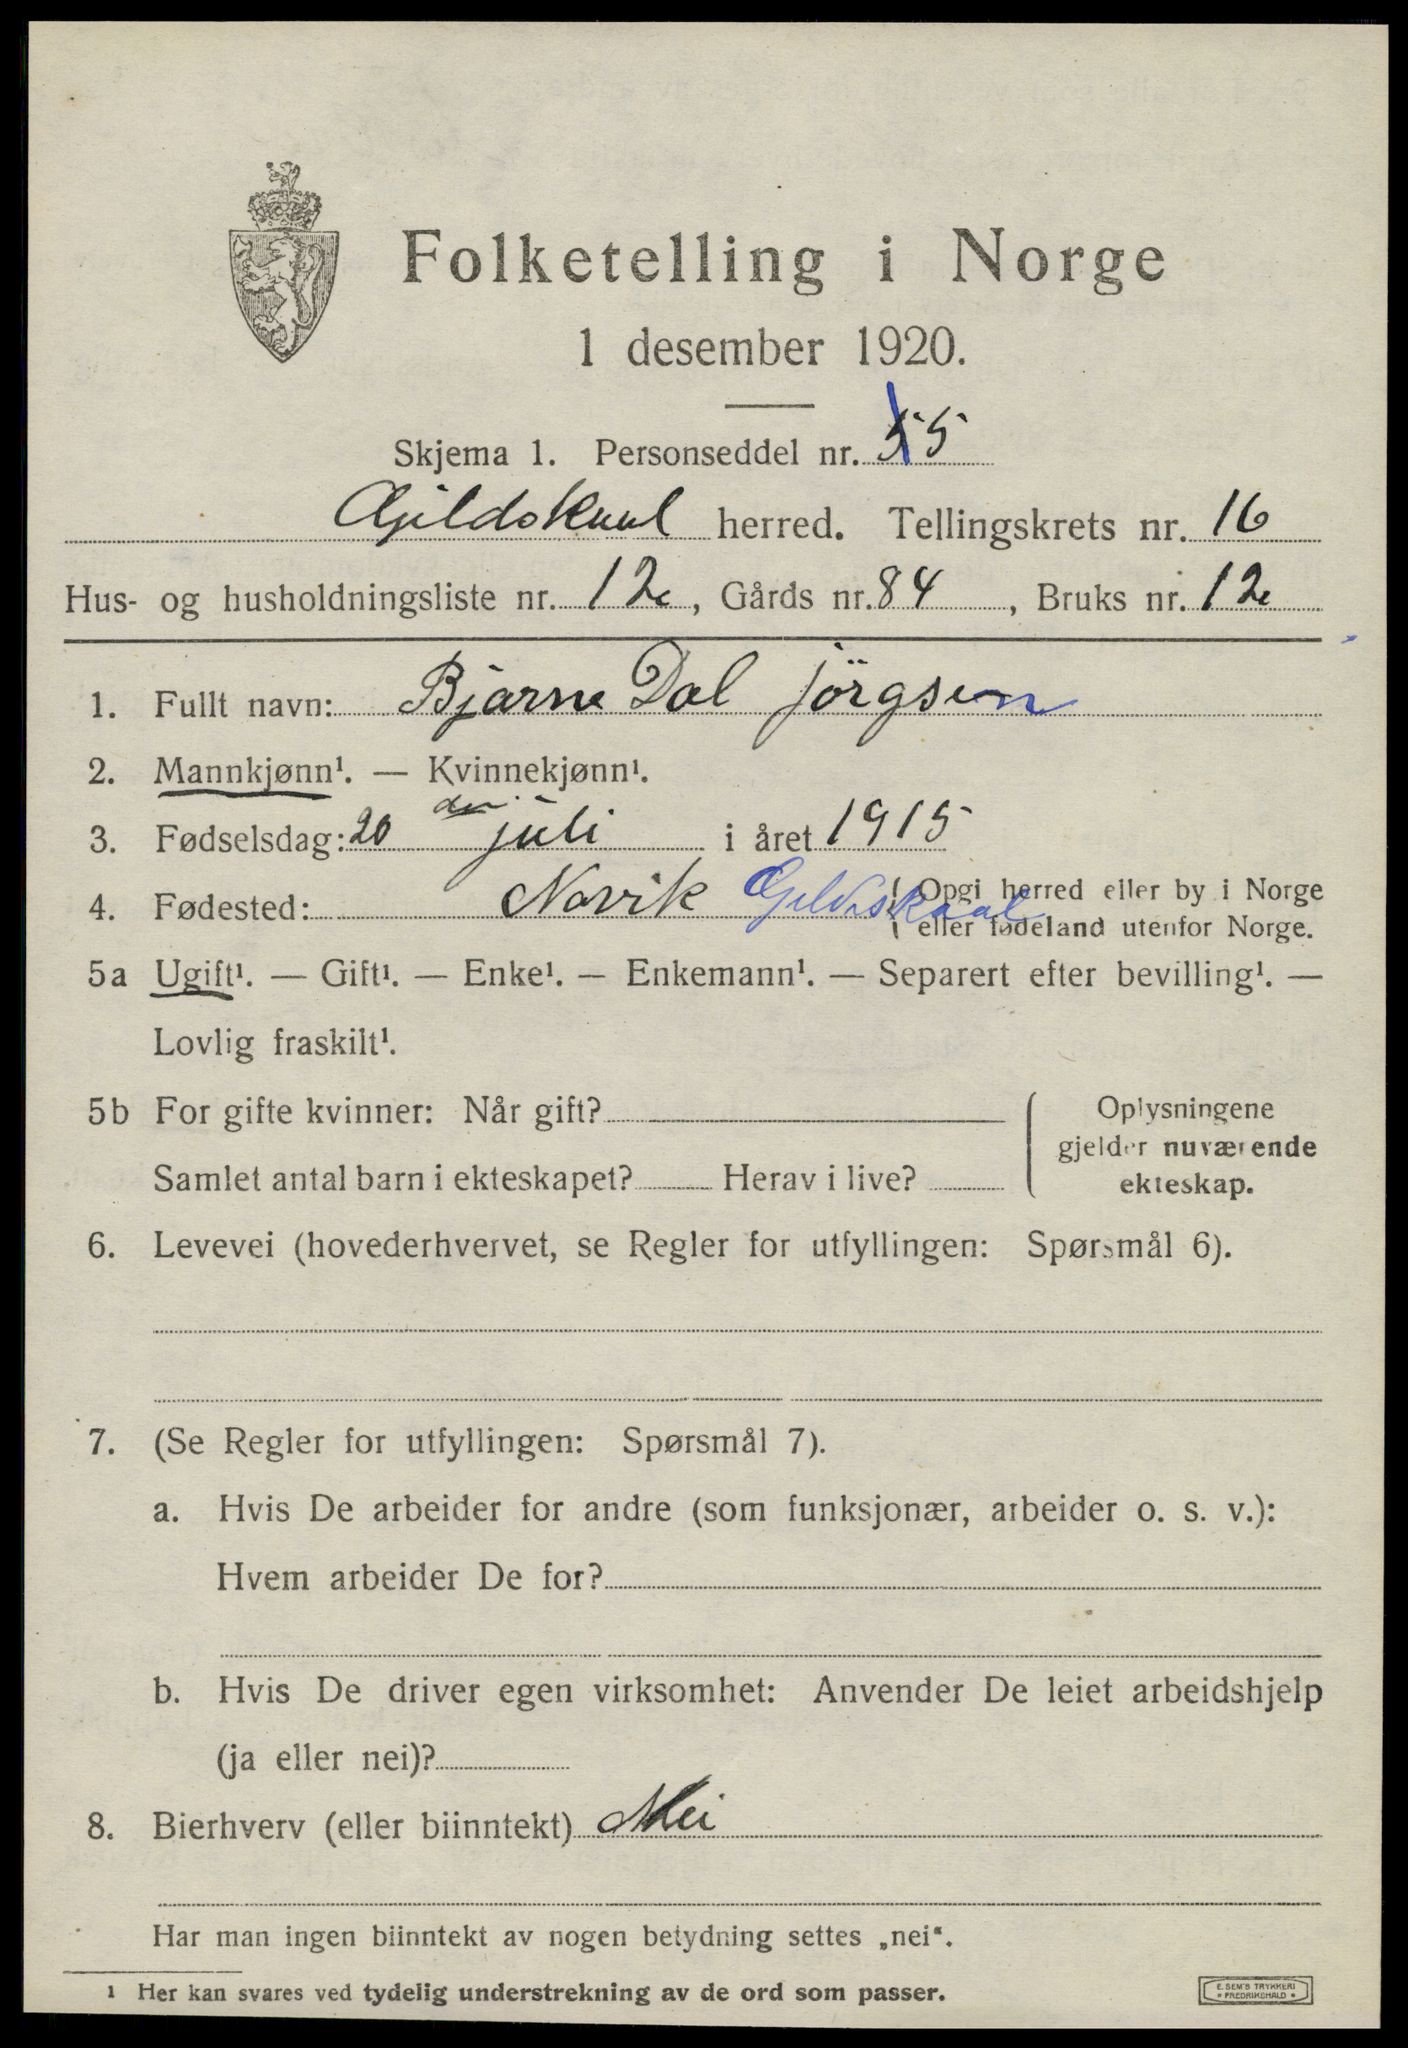 Folketelling i Norge
1 desember 1920.
Skjema 1. Personseddel nr. 55
Gildskaal herred. Tellingskrets nr. 16
Hus- og husholdningsliste nr. 12, Gårds nr. 84, Bruks nr. 12
1. Fullt navn: Bjarne Dal Jörgsen
2. Mannkjønn¹. — Kvinnekjønn¹.
3. Fødselsdag: 20 den juli i året 1915
4. Fødested: Novik Gildeskaal { Opgi herred eller by i Norge
eller fødeland utenfor Norge.
5a Ugift¹. — Gift¹. — Enke¹. — Enkemann¹. — Separert efter bevilling¹. —
Lovlig fraskilt¹.
5b For gifte kvinner: Når gift? { Oplysningene
gjelder nuværende
Samlet antal barn i ekteskapet? Herav i live? ekteskap.
6. Levevei (hovederhvervet, se Regler for utfyllingen: Spørsmål 6).
7. (Se Regler for utfyllingen: Spørsmål 7).
a. Hvis De arbeider for andre (som funksjonær, arbeider o. s. v.):
Hvem arbeider De for?
b. Hvis De driver egen virksomhet: Anvender De leiet arbeidshjelp
(ja eller nei)?
8. Bierhverv (eller biinntekt) Nei
Har man ingen biinntekt av nogen betydning settes „nei“.
¹ Her kan svares ved tydelig understrekning av de ord som passer.
E. SEM'S TRYKKERI
* FREDRIKSHALD *